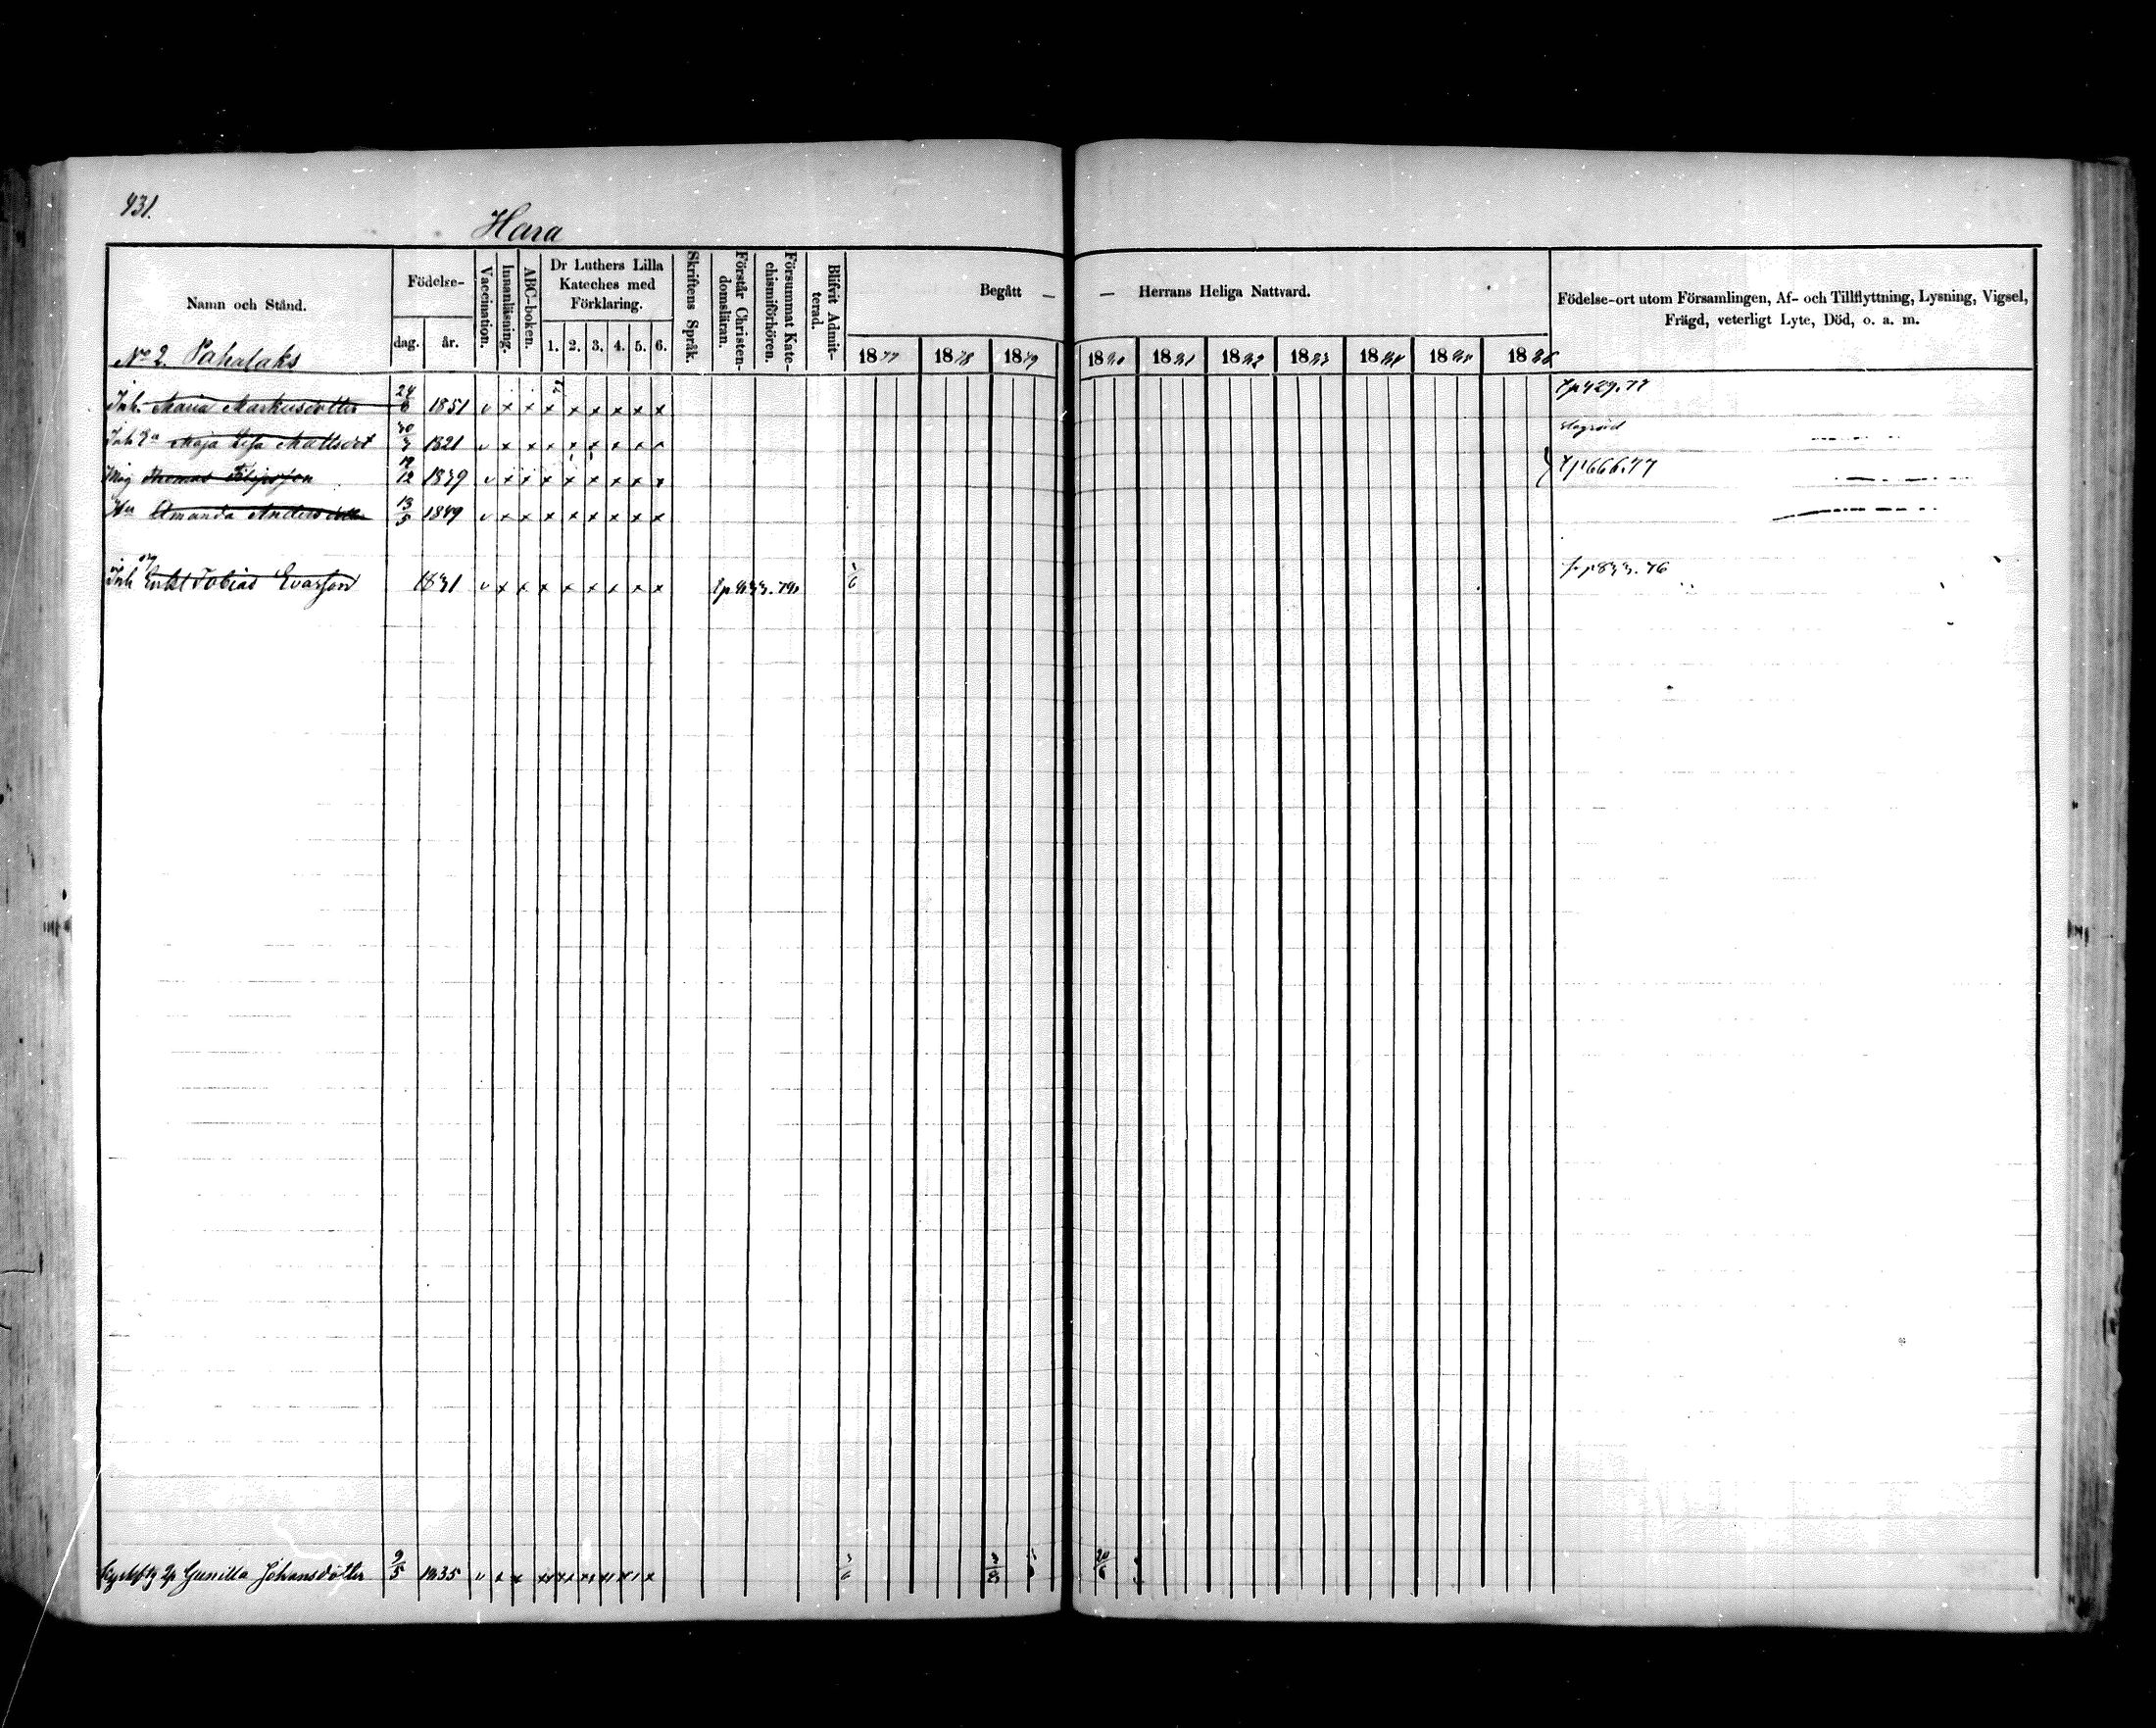 431.
Hara
Namn och Stånd.
Födelse-
dag. år.
Vaccination.
Innanläsning.
ABC-boken.
Dr Luthers Lilla
Kateches med
Förklaring.
1. 2. 3. 4. 5. 6.
Skriftens Språk.
Förstår Christen-
domsläran.
Försummat Kate-
chismiförhören.
Blifvit Admit-
terad.
Begått — — Herrans Heliga Nattvard.
1877 1878 1879 1880 1881 1882 1883 1884 1885 1886
Födelse-ort utom Församlingen, Af- och Tillflyttning, Lysning, Vigsel,
Frägd, veterligt Lyte, Död, o. a. m.
No 2. Pahalaks
Inh. Maria Markusdotter 24/6 1851 v x x x x x x x x p 429.77
Inh Ea Maja Lisa Mattsdot 1821 v x x x x x x x
Måg Thomas Filipsson 12 1839 v x x x x x x x x p 666.77
Hu Amanda Andersdotter 13/5 1849 v x x x x x x x x
Inh Enkl Tobias Evasson 1831 v x x x x x x x x p 833.76
Gunilla Johansdotter 9/5 1835 v x x x x x x x 20/6